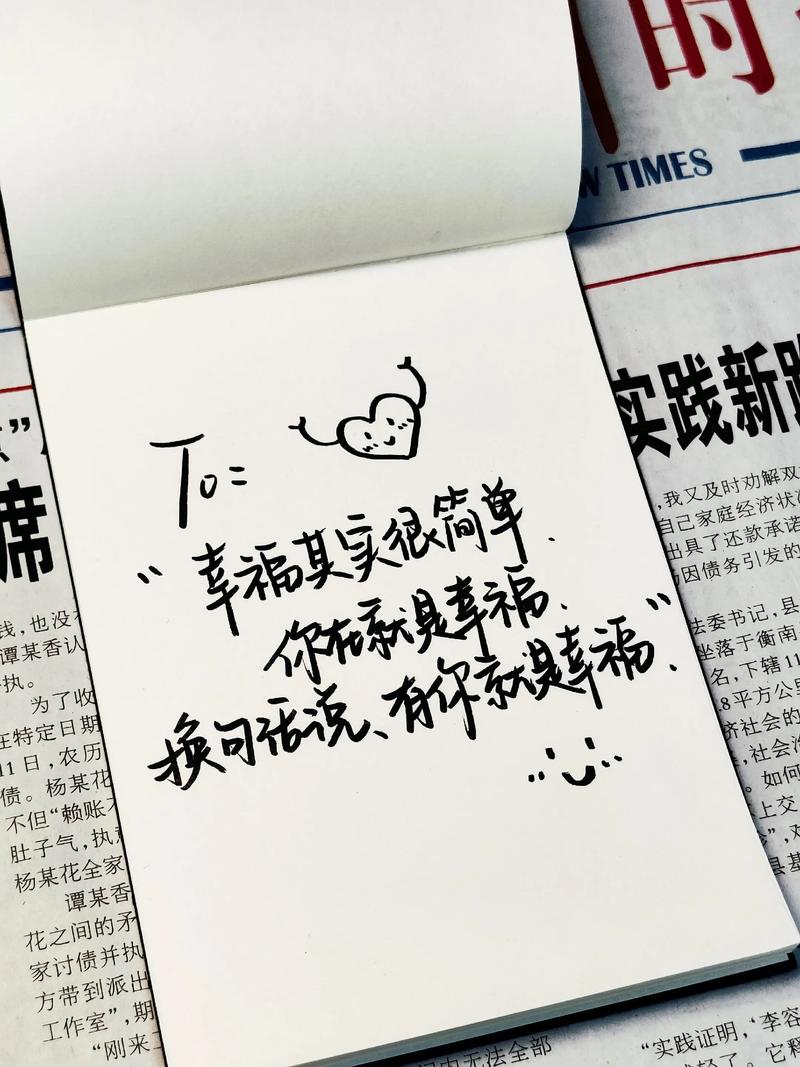 时
TIMES
实践新
席
To:
“幸福其实很简单.
你在就是幸福、
换句话说、有你就是幸福、”
,我又及时劝解双
自己家庭经济状
出具了还款承诺
因债务引发的
法委书记,县
坐落于衡南
名,下辖11
.8平方公里
济社会的
,社会治
。如何
上交
”,对
县基
钱,也没
谭某香认
执。
为了收
在特定日期
11日,农历
债。杨某花
不但“赖账
肚子气,执
杨某花全家
谭某香
花之间的矛
家讨债并执
方带到派出
工作室”,期
“刚来
内无法全部
“实践证明,‘李容
轻了。它释